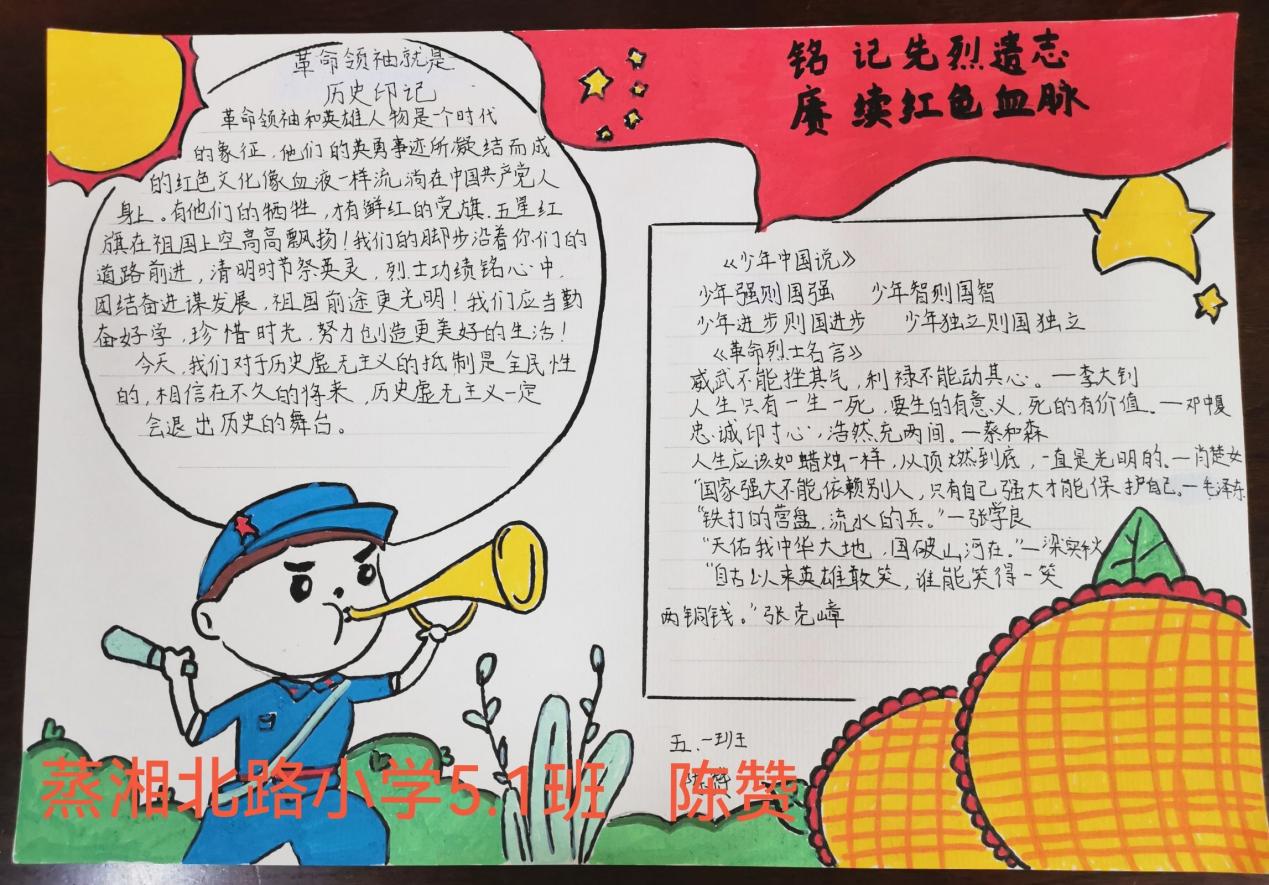 铭记先烈遗志
赓续红色血脉
革命领袖就是
历史印记
革命领袖和英雄人物是个时代
的象征,他们的英勇事迹所凝结而成
的红色文化像血液一样流淌在中国共产党人
身上。有他们的牺牲,才有鲜红的党旗.五星红
旗在祖国上空高高飘扬!我们的脚步沿着你们的
道路前进,清明时节祭英灵,烈士功绩铭心中.
团结奋进谋发展,祖国前途更光明!我们应当勤
奋好学,珍惜时光,努力创造更美好的生活!
今天,我们对于历史虚无主义的抵制是全民性
的,相信在不久的将来,历史虚无主义一定
会退出历史的舞台。
《少年中国说》
少年强则国强 少年智则国智
少年进步则国进步 少年独立则国独立
《革命烈士名言》
威武不能挫其气,利禄不能动其心。—李大钊
人生只有一生一死,要生的有意义,死的有价值。—邓中夏
忠诚印寸心,浩然充两间。—蔡和森
人生应该如蜡烛一样,从顶燃到底,一直是光明的。—肖楚女
"国家强大不能依赖别人,只有自己强大才能保护自己。—毛泽东
"铁打的营盘,流水的兵。"—张学良
"天佑我中华大地,国破山河在。"—梁实秋
"自古以来英雄敢笑,谁能笑得一笑
两铜钱。"张克嶂
五.一班
蒸湘北路小学5.1班 陈赞